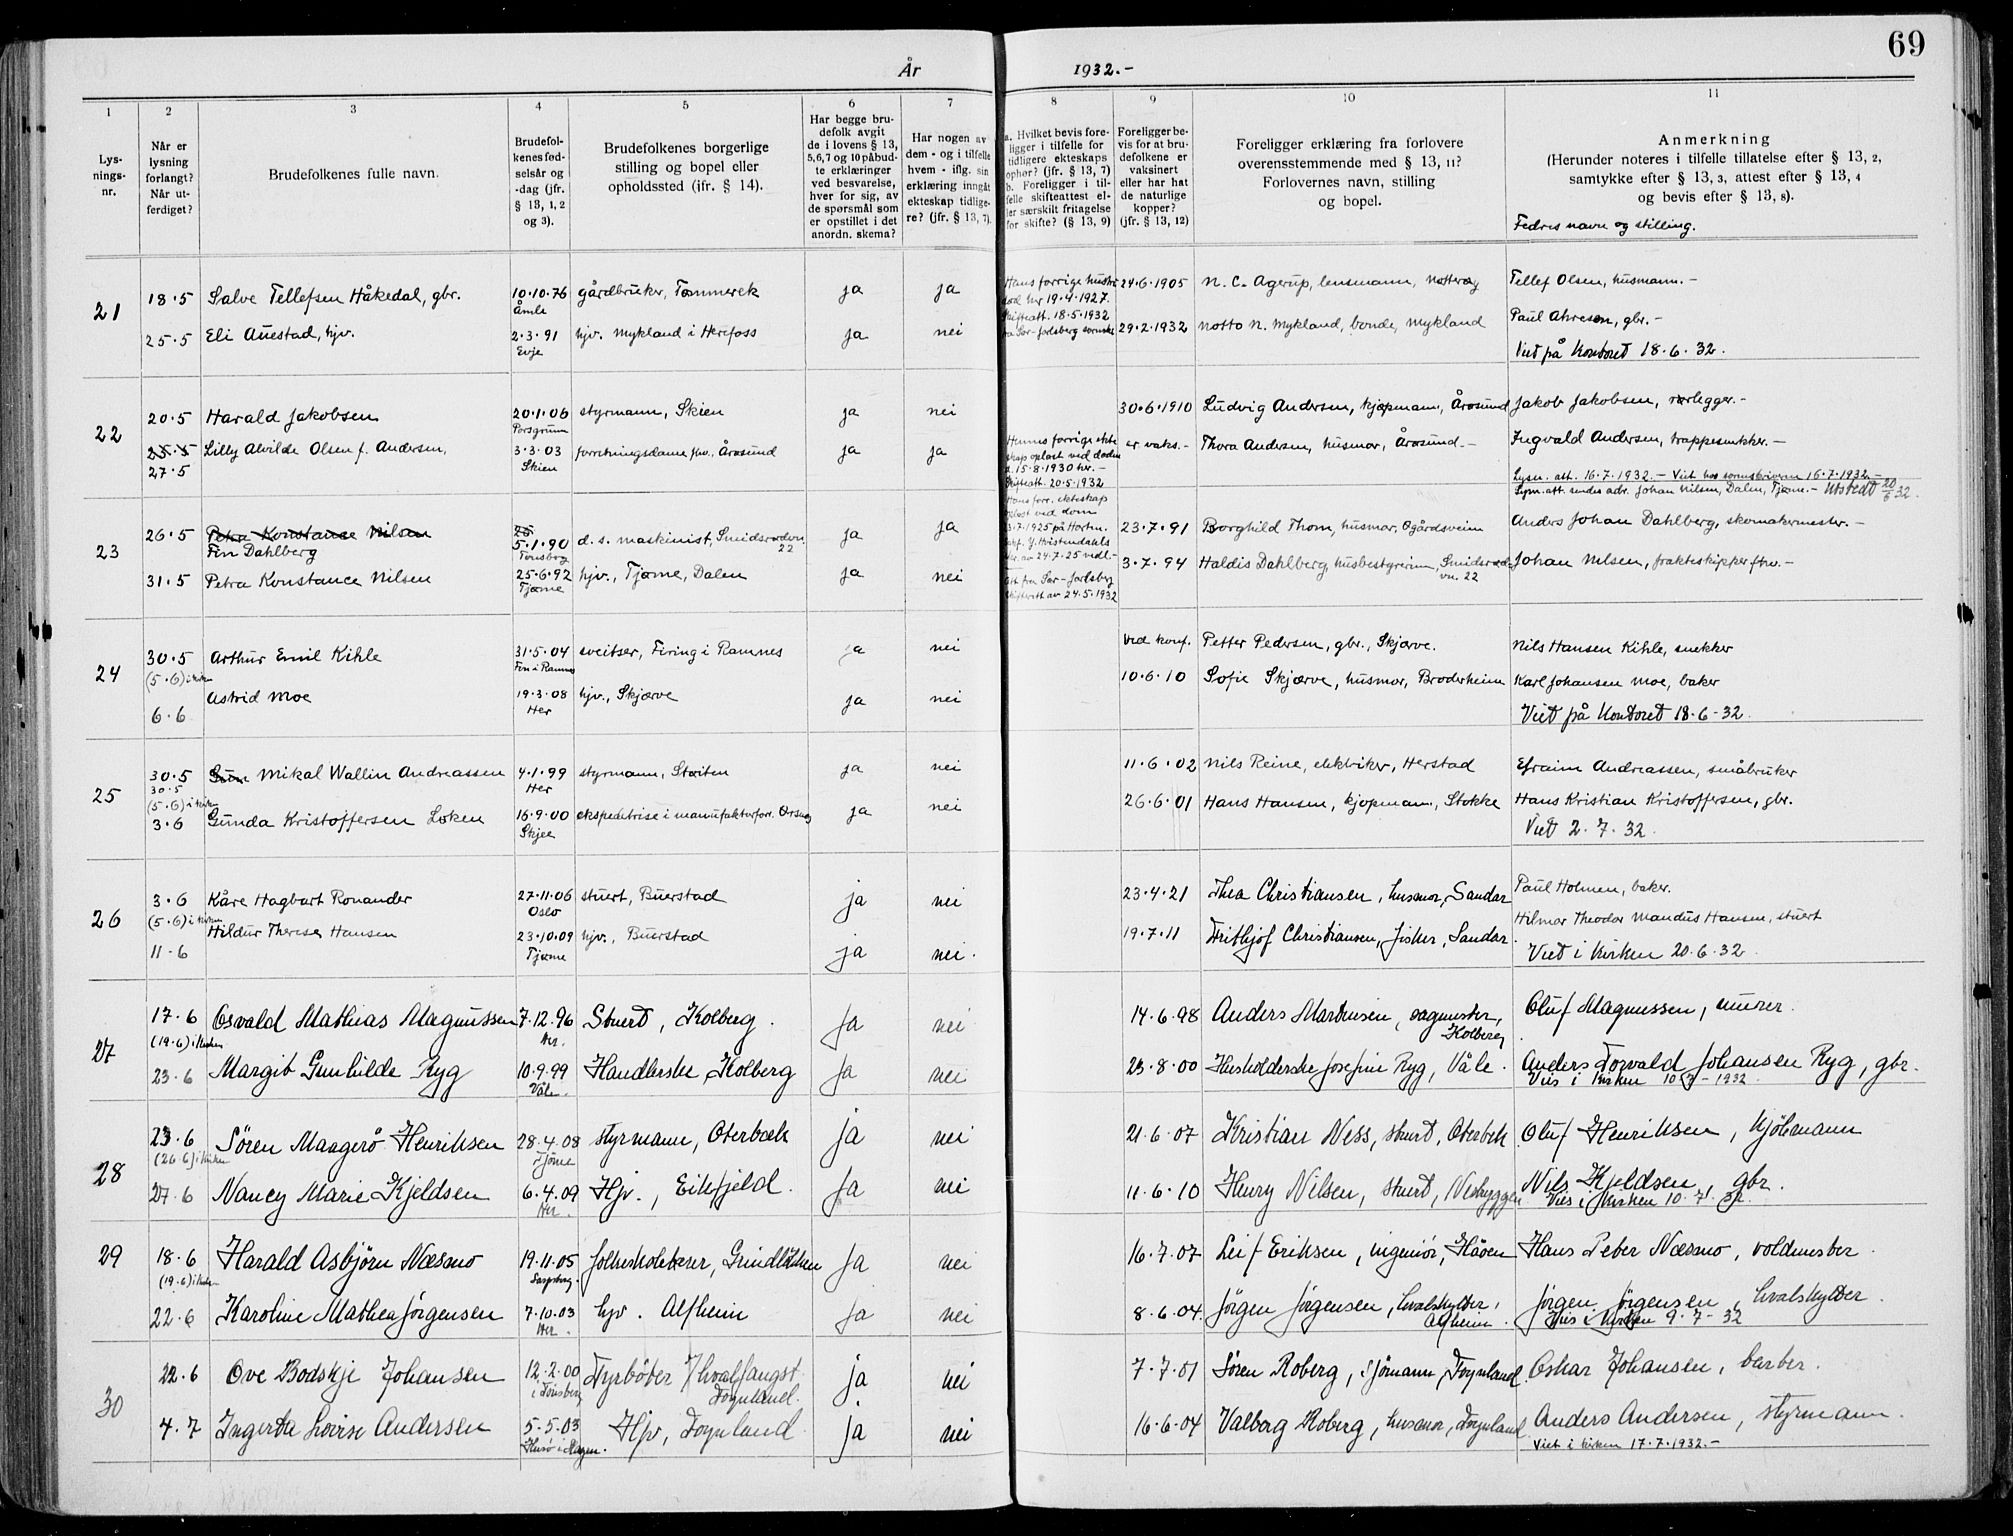 69
År 1932.-
1 2 3 4 5 6 7 8 9 10 11
Lys-
nings-
nr.
Når er
lysning
forlangt?
Når ut-
ferdiget?
Brudefolkenes fulle navn.
Brudefol-
kenes fød-
selsår og
-dag (jfr.
§ 13, 1, 2
og 3).
Brudefolkenes borgerlige
stilling og bopel eller
opholdssted (jfr. § 14).
Har begge bru-
defolk avgit
de i lovens § 13,
5, 6, 7 og 10 påbud-
te erklæringer
ved besvarelse,
hver for sig, av
de spørsmål som
er opstillet i det
anordn. skema?
Har nogen av
dem - og i tilfelle
hvem - iflg. sin
erklæring inngåt
ekteskap tidlige-
re? (jfr. § 13, 7).
a. Hvilket bevis fore-
ligger i tilfelle for
tidligere ekteskaps
ophør? (jfr. § 13, 7)
b. Foreligger i til-
felle skifteattest el-
ler særskilt fritagelse
for skifte? (§ 13, 9)
Foreligger be-
vis for at bru-
defolkene er
vaksinert
eller har hat
de naturlige
kopper?
(jfr. § 13, 12)
Foreligger erklæring fra forlovere
overensstemmende med § 13, 11?
Forlovernes navn, stilling
og bopel.
Anmerkning
(Herunder noteres i tilfelle tillatelse efter § 13, 2,
samtykke efter § 13, 3, attest efter § 13, 4
og bevis efter § 13, 8).
Fedres navn og stilling.
21
18.5 Salve Tellefsen Håkedal, gbr. 10.10.76 gårdbruker, Tømmerek ja ja 24.6.1905 N. C. Agerup, lensmann, Nøtterøy Tellef Olsen, husmann.-
Åmle
Hans forrige hustru
død her 19.4.1927.
Skifteatt. 18.5.1932
fra Sør-Jarlsberg sorenskr.
25.5 Eli Auestad, hjv. 2.3.91 hjv. Mykland i Herefoss ja nei 29.2.1932 Notto N. Mykland, bonde, Mykland Paul Ahresen, gbr.-
Evje
Viet på kontoret 18.6.32.
22
20.5 Harald Jakobsen 20.1.06 styrmann, Skien ja nei 30.6.1910 Ludvig Andersen, kjøpmann, Årøsund Jakob Jakobsen, rørlegger.-
Porsgrunn
25.5 Lilly Alvilde Olsen f. Andersen, 3.3.03 forretningsdame fhv., Årøsund ja ja er vaks.- Thora Andersen, husmor, Årøsund.- Ingvald Andersen, trappesnekker.-
27.5
Skien
Hennes forrige ekte
skap opløst ved døden
d. 15.8.1930 her.-
Skifteatt. 20.5.1932
Lysn. att. 16.7.1932.- Viet hos sorenskriveren 16.7.1932.-
Lysn. att. sendes adr. Johan Nilsen, Dalen, Tjøme.- Utstedt 20/6 32.
23
26.5 Petra Konstance Nilsen
Fin Dahlberg 5.1.90 d. s. maskinist, Smidsrødvn. 22 ja ja 23.7.91 Borghild Thom, husmor, Øgårdsveien Anders Johan Dahlberg, skomakermester.-
Tønsberg
Hans forr. ekteskap
opløst ved dom
3.7.1925 på Horten.
Bekr. av 24.7.25 vedl.-
Att fra Sør-Jarlsberg
skifterett av 24.5.1932
31.5 Petra Konstance Nilsen 25.6.92 hjv., Tjøme, Dalen ja nei 3.7.94 Haldis Dahlberg, husbestyrerinne, Smidsrød-vn. 22 Johan Nilsen, frakteskipper fhv.-
Tjøme
24
30.5 Arthur Emil Kihle 31.5.04 sveitser, Firing i Ramnes ja nei Ved konf. Petter Pedersen, gbr., Skjærve. Nils Hansen Kihle, snekker
(5.6) i kirken
Astrid Moe 19.3.08 hjv., Skjærve ja nei 10.6.10 Sofie Skjærve, husmor, Broderheim Karl Johansen Moe, baker
6.6
Her
Viet på kontoret 18.6-32.
25
30.5 Mikal Wallin Andreassen 4.1.99 styrmann, Støiten ja nei 11.6.02 Nils Reine, elektriker, Herstad Efraim Andreassen, småbruker
30.5
Her
(5.6) i kirken
3.6 Gunda Kristoffersen Løken 16.9.00 ekspeditrise i manufakturforr. Ørsnes ja nei 26.6.01 Hans Hansen, kjøpmann, Stokke Hans Kristian Kristoffersen, gbr.
Skjee
Viet 2.7.32.
26
3.6 Kåre Hagbart Ronander 27.11.06 stuert, Buerstad ja nei 23.4.21 Thea Christiansen, husmor, Sandar Paul Holmen, baker.
(5.6) i kirken
Oslo
Hildur Therese Hansen 23.10.09 hjv., Buerstad ja nei. 19.7.11 Frithjof Christiansen, fisker, Sandar. Hilmar Theodor Mandus Hansen, stuert
11-6
Tjøme
Viet i kirken 20.6.32
27
17.6 Osvald Mathias Magnussen 7.12.96 Stuert, Kolberg. Ja nei 14.6.98 Anders Martinsen, sagmester, Kolberg Oluf Magnussen, murer.
(19.6) i kirken
Her.
23.6 Margit Gunhilde Ryg 10.9.99 Handlerske, Kolberg Ja nei 23.8.00 Husholderske Josefine Ryg, Våle. Anders Torvald Johansen Ryg, gbr.
Våle.
Vies i kirken 10/7-1932
28
23.6 Sören Maagerö Henriksen 28.4.08 styrmann, Oterbæk ja nei 21.6.07 Kristian Ness, stuert, Oterbek. Oluf Henriksen, kjöbmann
(26.6) i kirken
Tjöme
27.6 Nancy Marie Kjeldsen 6.4.09 Hjv., Eikfjeld. Ja nei 11.6.10 Henry Nilsen, stuert, Nesbyggen Nils Kjeldsen, gbr.
Her.
Vies i kirken 10.7. 32.
29
18.6 Harald Asbjörn Næsmo 19.11.05 folkeskolelærer, Grindløkken Ja nei 16.7.07 Leif Eriksen, ingeniör, Håöen Hans Peter Næsmo, voldmester.
(19.6) i kirken
Sarpsborg.
22.6 Karoline Mathea Jörgensen 7.10.03 hjv. Alfheim Ja nei 8.6.04. Jörgen Jörgensen, hvalskytter, Alfheim. Jörgen Jörgensen, hvalskytter.
Her.
Vies i kirken 9.7-32
30
22.6 Ove Bodskje Johansen 12.2.00 Fyrböter / hvalfangst. Föynland. ja nei 7.7.01 Sören Roberg, sjömann, Föynland. Oskar Johansen, barber.
i Tönsberg
4.7 Ingerda Lovise Andersen 5.5.03 Hjv, Föynland ja nei 16.6.04 Valborg Roberg, husmor, Föynland. Anders Andersen, styrmann.
Husø i Slagen.
Viet i kirken 17.7.1932.-